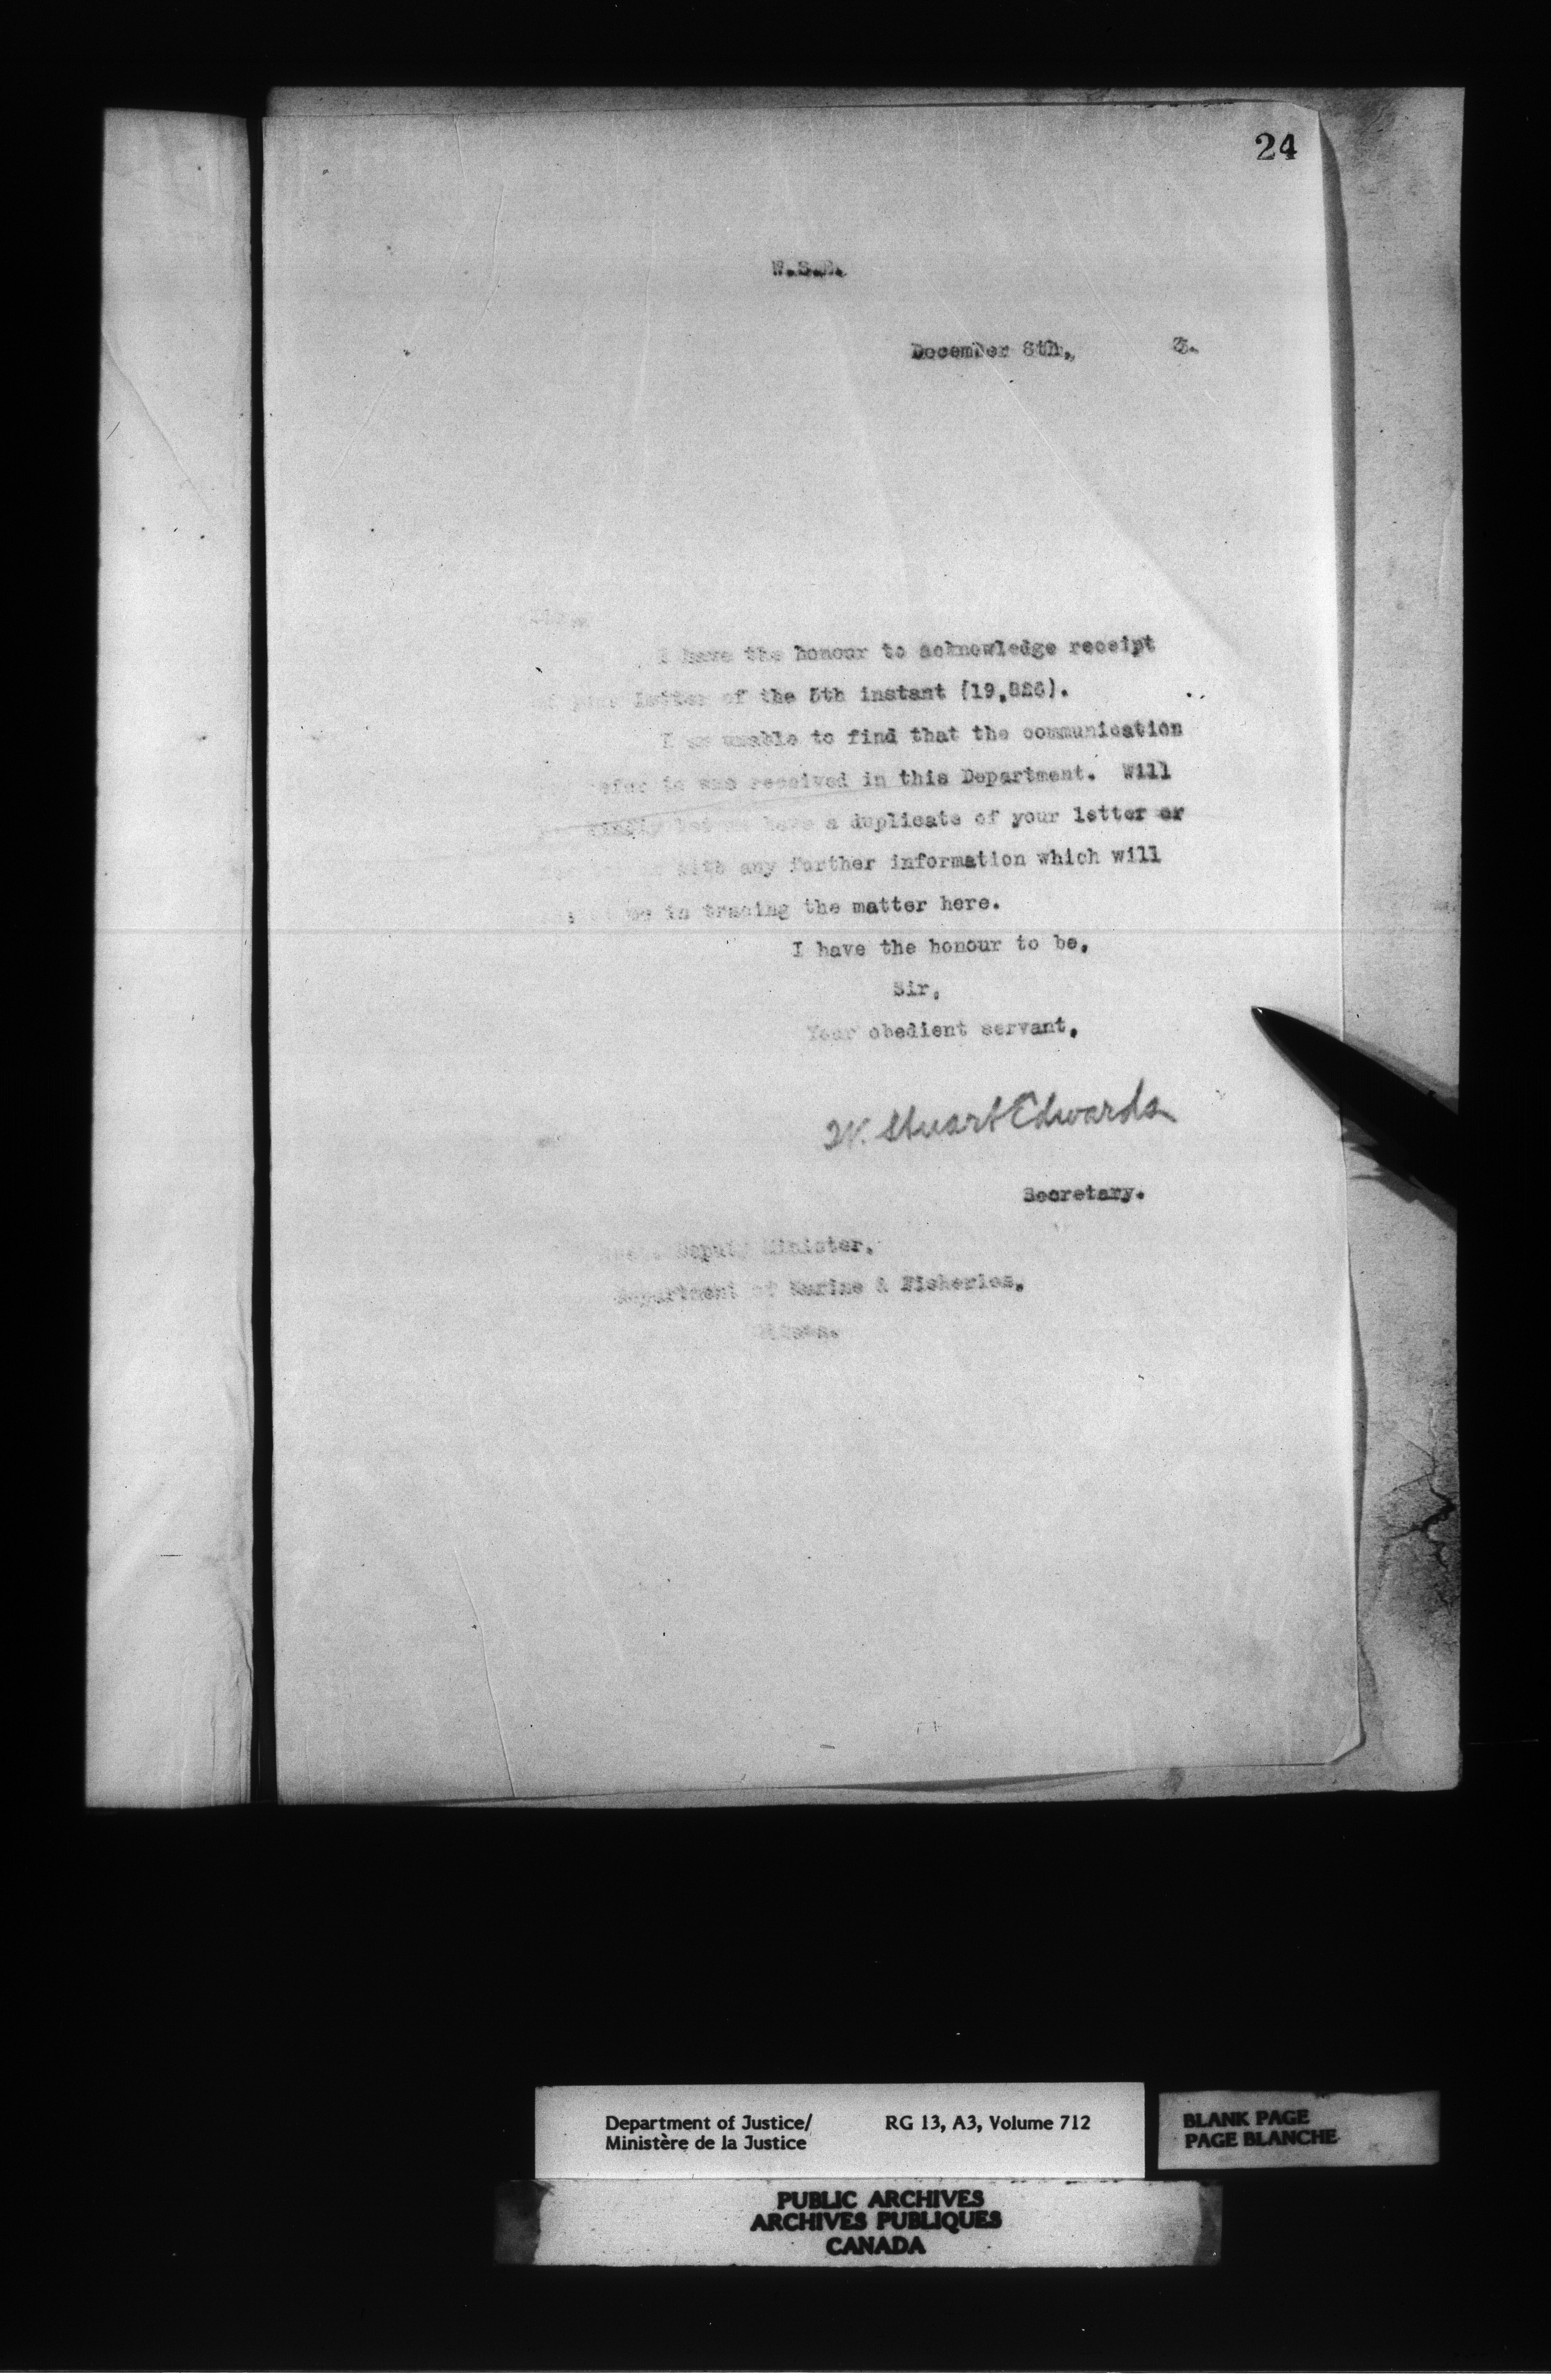 24
W.S.E.
December 8th, 3.
Sir,
I have the honour to acknowledge receipt
of your letter of the 5th instant (19,826).
I am unable to find that the communication
you refer to was received in this Department. Will
you kindly let me have a duplicate of your letter or
with any further information which will
me in tracing the matter here.
I have the honour to be,
Sir,
Your obedient servant,
W. Stuart Edwards
Secretary.
Deputy Minister,
Department of Marine & Fisheries,
Ottawa.
Department of Justice/ RG 13, A3, Volume 712
Ministère de la Justice
BLANK PAGE
PAGE BLANCHE
PUBLIC ARCHIVES
ARCHIVES PUBLIQUES
CANADA